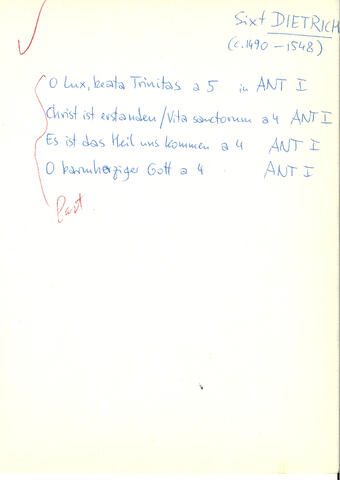 Sixt DIETRICH
(c.1490 - 1548)
O Lux, beata Trinitas a 5 in ANT I
Christ ist erstanden/Vita sanctorum a 4 ANT I
Es ist das Heil uns kommen a 4 ANT I
O barmherziger Gott a 4 ANT I